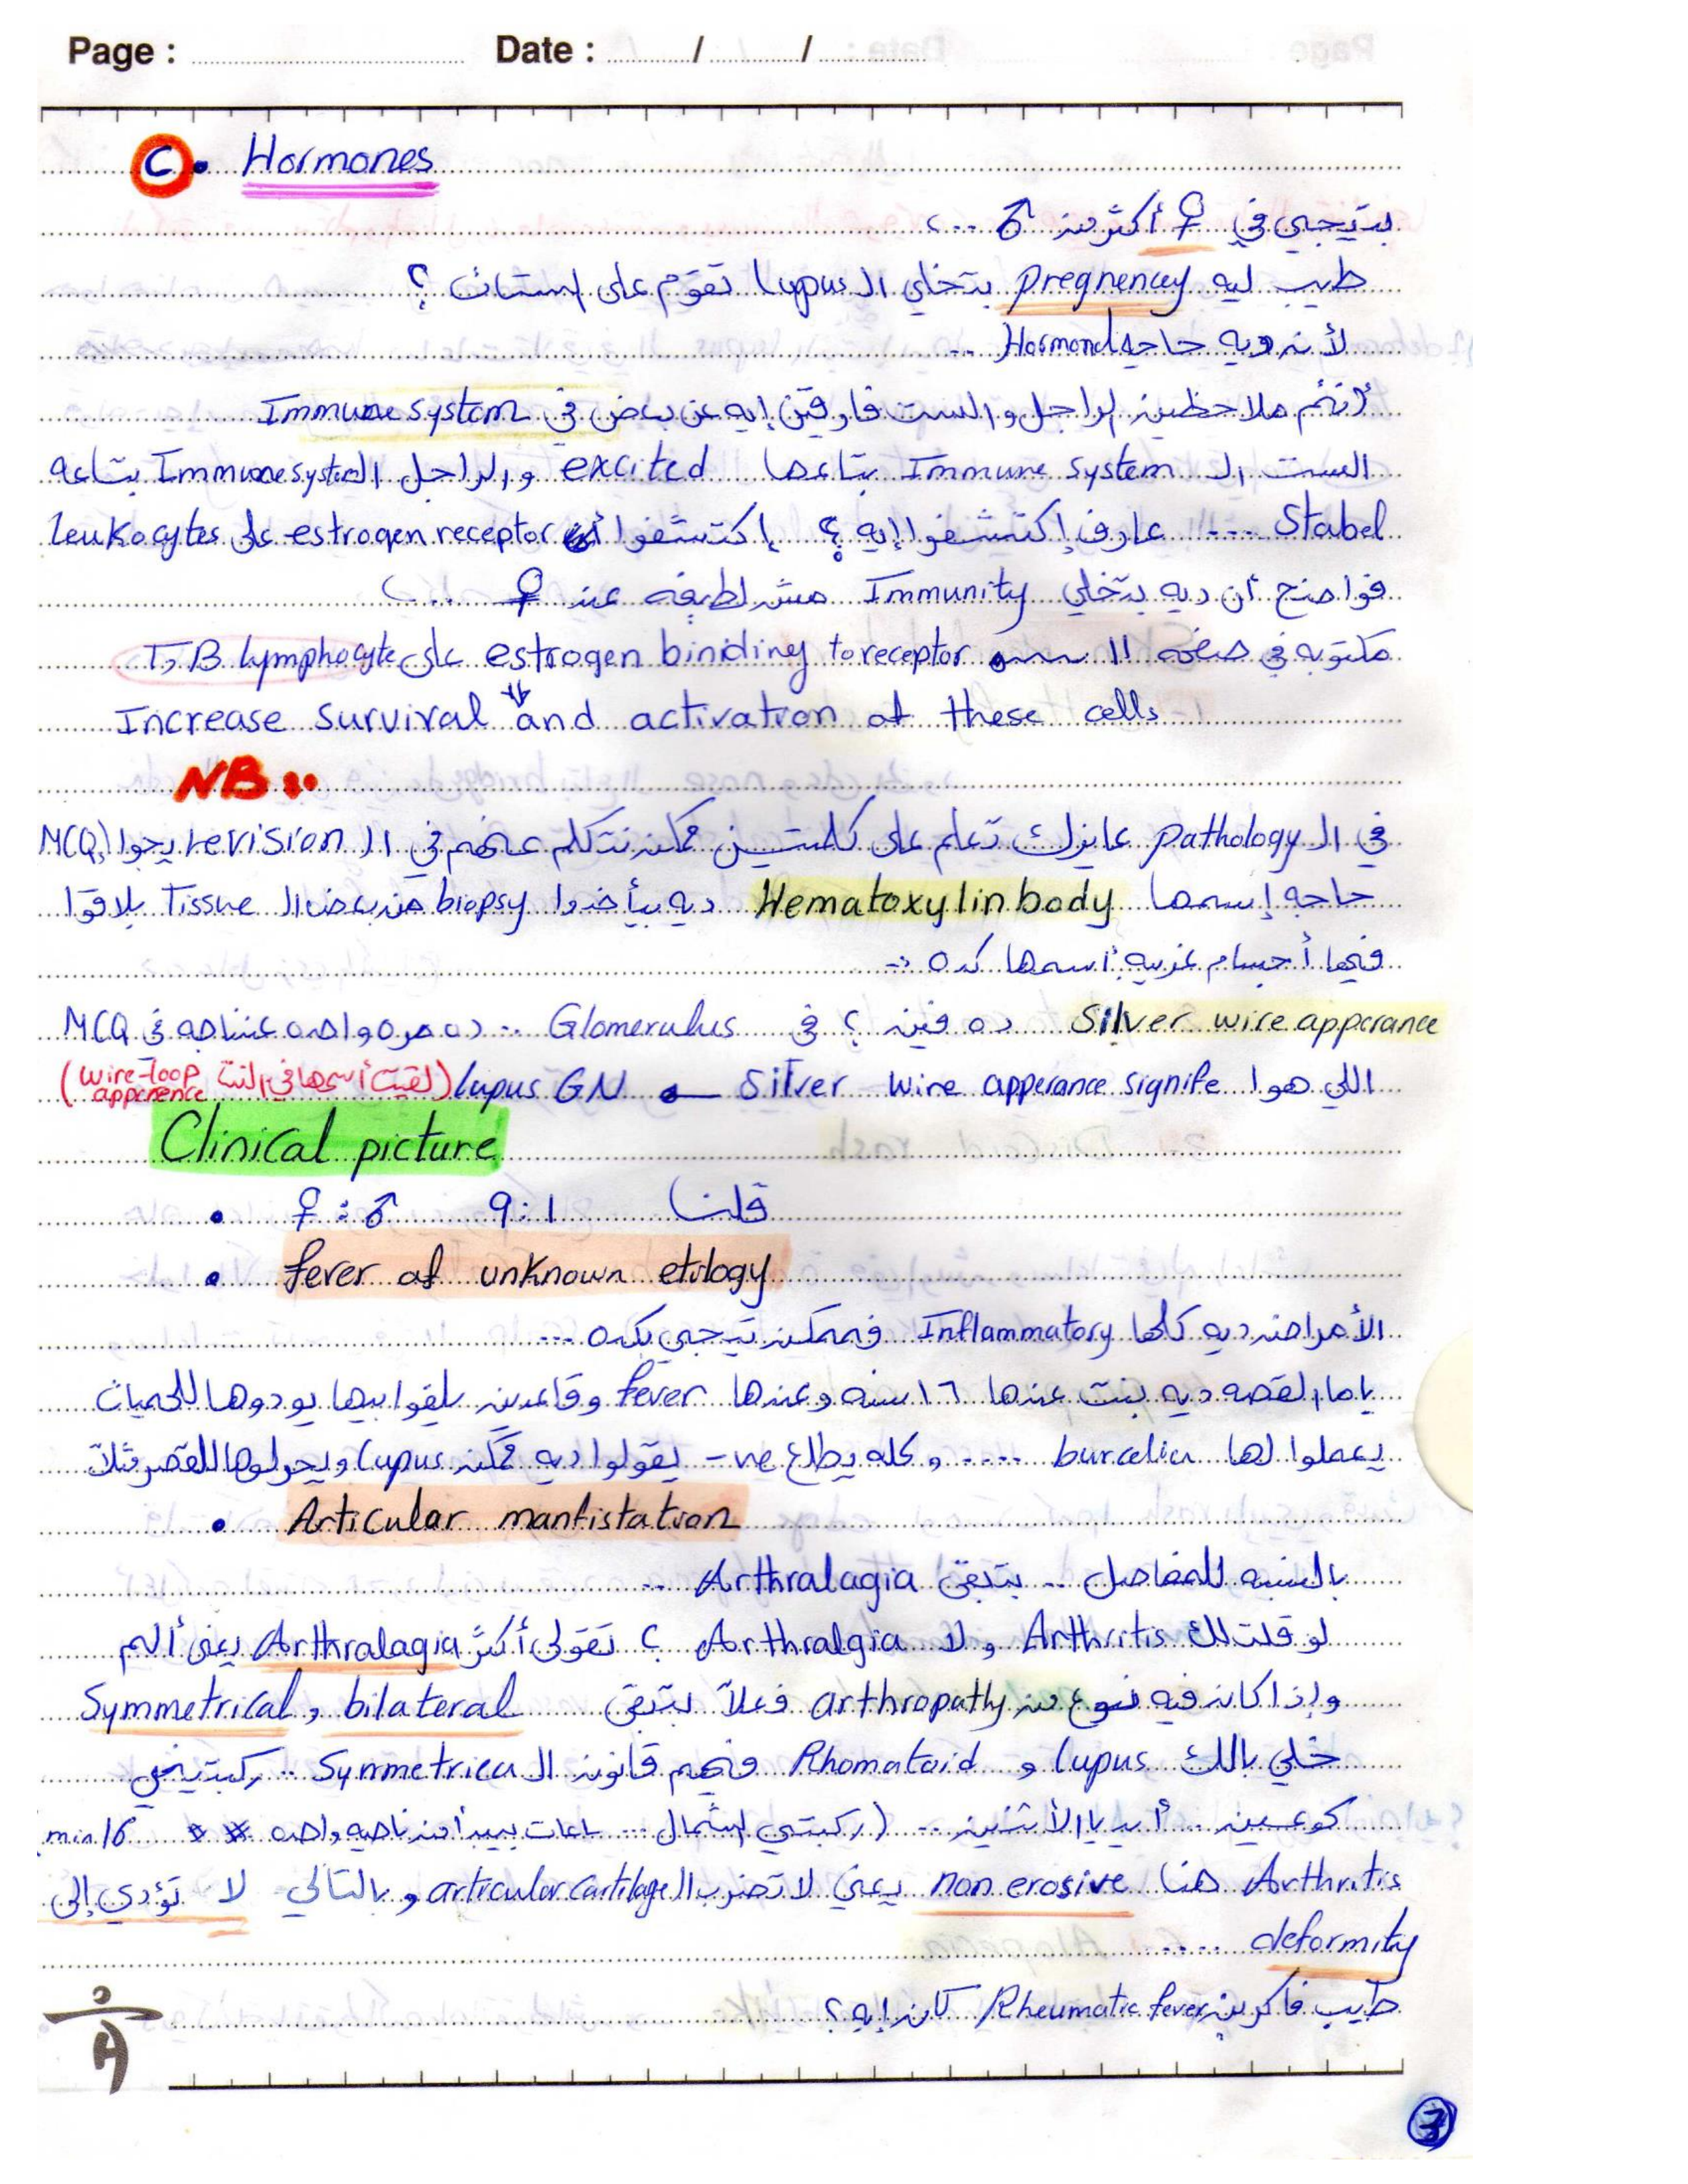 Page : Date : / /
C. Hormones
بتيجي في ♀ أكثر من ♂ ...
طيب ليه pregnencey بتخلي ال Lupus تقوم على الستات ؟
لأنه ديه حاجه Hormonal ..
أنتم ملاحظين الراجل والست فارقين إيه عن بعض في Immune system
الست ال Immune system بتاعها excited والراجل ال Immune system بتاعه
Stabel .... عارف إكتشفوا إيه ؟ إكتشفوا أن estrogen receptor على leukocytes
فواضح أن ديه بتخلي Immunity مش لطيفه عند ♀ ...
مكتوبه في صفحه 11 estrogen biniding to receptor على T, B lymphocyte
⇓
Increase survival and activation of these cells
NB :
في ال pathology عايزك تعلم على كلمتين ممكن نتكلم عنهم في ال revision يجوا MCQ
حاجه إسمها Hematoxylin body ديه بيأخدوا biopsy من بعض ال Tissue بلاقوا
فيها أجسام غريبه أسمها كده :-
Silver wire apperance ده فين ؟ في Glomerulus .. ده مره واحده عندنا جه في MCQ
اللي هوا Silver wire apperance signife lupus GN (لقيت أسمها في النت wire-loop apperence)
Clinical picture
• ♀ : ♂ 9:1 قلنا
• fever of unknown etilogy
الأمراض ديه كلها Inflammatory فممكن تيجي بكده ...
ياما القصه ديه بنت عندها ١٦ سنه وعندها fever وقاعدين يلفوا بيها يودوها للحميات
يعملوا لها burcelia .... وكله يطلع -ve يقولوا ديه ممكن Lupus ويحولوها للقصر مثلاً
• Articular manfistation
بالنسبه للمفاصل .. بتبقى Arthralagia ..
لو قلت لك Arthritis ولا Arthralgia ؟ تقولى أكثر Arthralagia يعني ألم
وإذا كان فيه نوع من arthropathy فعلاً بتبقى bilateral , Symmetrical
خلي بالك Lupus و Rhomatoid فيهم قانون ال Symmetrica .. ركبتين
كوعين .. أيديا الأثنين .. (ركبتي الشمال ... ساعات بيبدأ من ناحيه واحده ** min 16
Arthritis هنا non erosive يعني لا تضرب ال articular cartilage وبالتالي لا تؤدي إلى
deformity ....
طيب فاكرين Rheumatic fever كان إيه ؟
3